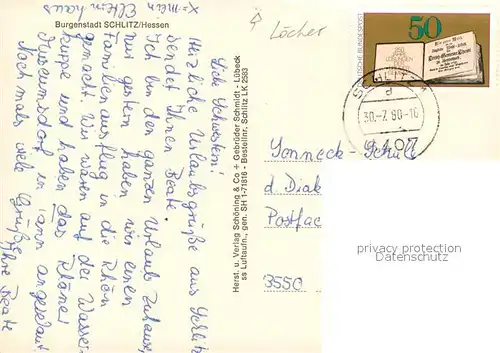 x = mein
Elternhaus
Burgenstadt SCHLITZ/Hessen
Löcher
Liebe Schwestern!
Herzliche Urlaubsgrüße aus Schlitz
sendet Ihnen Beate.
Ich bin den ganzen Urlaub zuhause,
nur gestern haben wir einen
Familienausflug in die Rhön
gemacht. Wir waren auf der Wasser-
kuppe und haben das
Museumsdorf in Tann angesehen.
Nochmals viele Grüße
Ihre Beate
Herst. u. Verlag Schöning & Co + Gebrüder Schmidt - Lübeck
ss Luftaufn., gen. SH 1-71816 - Bestellnr. Schlitz LK 2583
DEUTSCHE BUNDESPOST
50
250
LOSUNGEN
SCHLITZ 1
d
30.-7.80-16
6407
Sonneck-Schule
d. Diak
Postfac
3550
privacy protection
Datenschutz